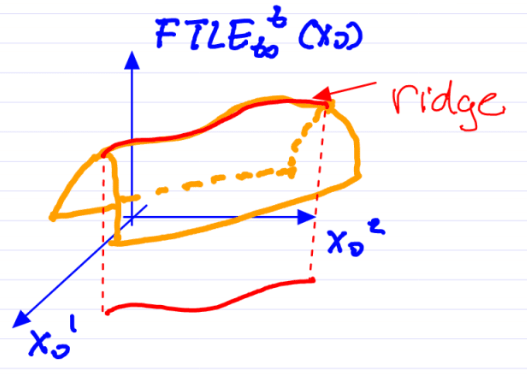 FTLE_{t₀}^{t}(x₀)
ridge
x₀²
x₀¹